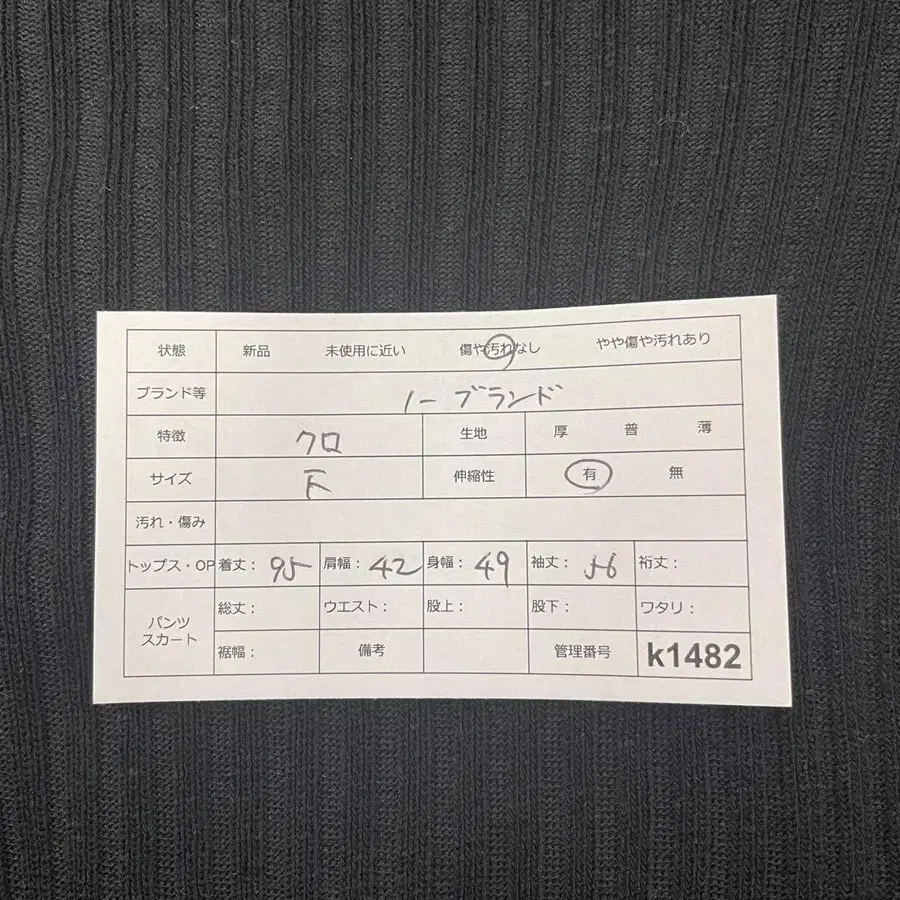 状態 新品 未使用に近い 傷や汚れなし やや傷や汚れあり
ブランド等 ノーブランド
特徴 クロ 生地 厚 普 薄
サイズ 伸縮性 有 無
汚れ・傷み
トップス・OP 着丈: 95 肩幅: 42 身幅: 49 袖丈: 56 裄丈:
パンツ スカート
総丈: ウエスト: 股上: 股下: ワタリ:
裾幅: 備考 管理番号 k1482